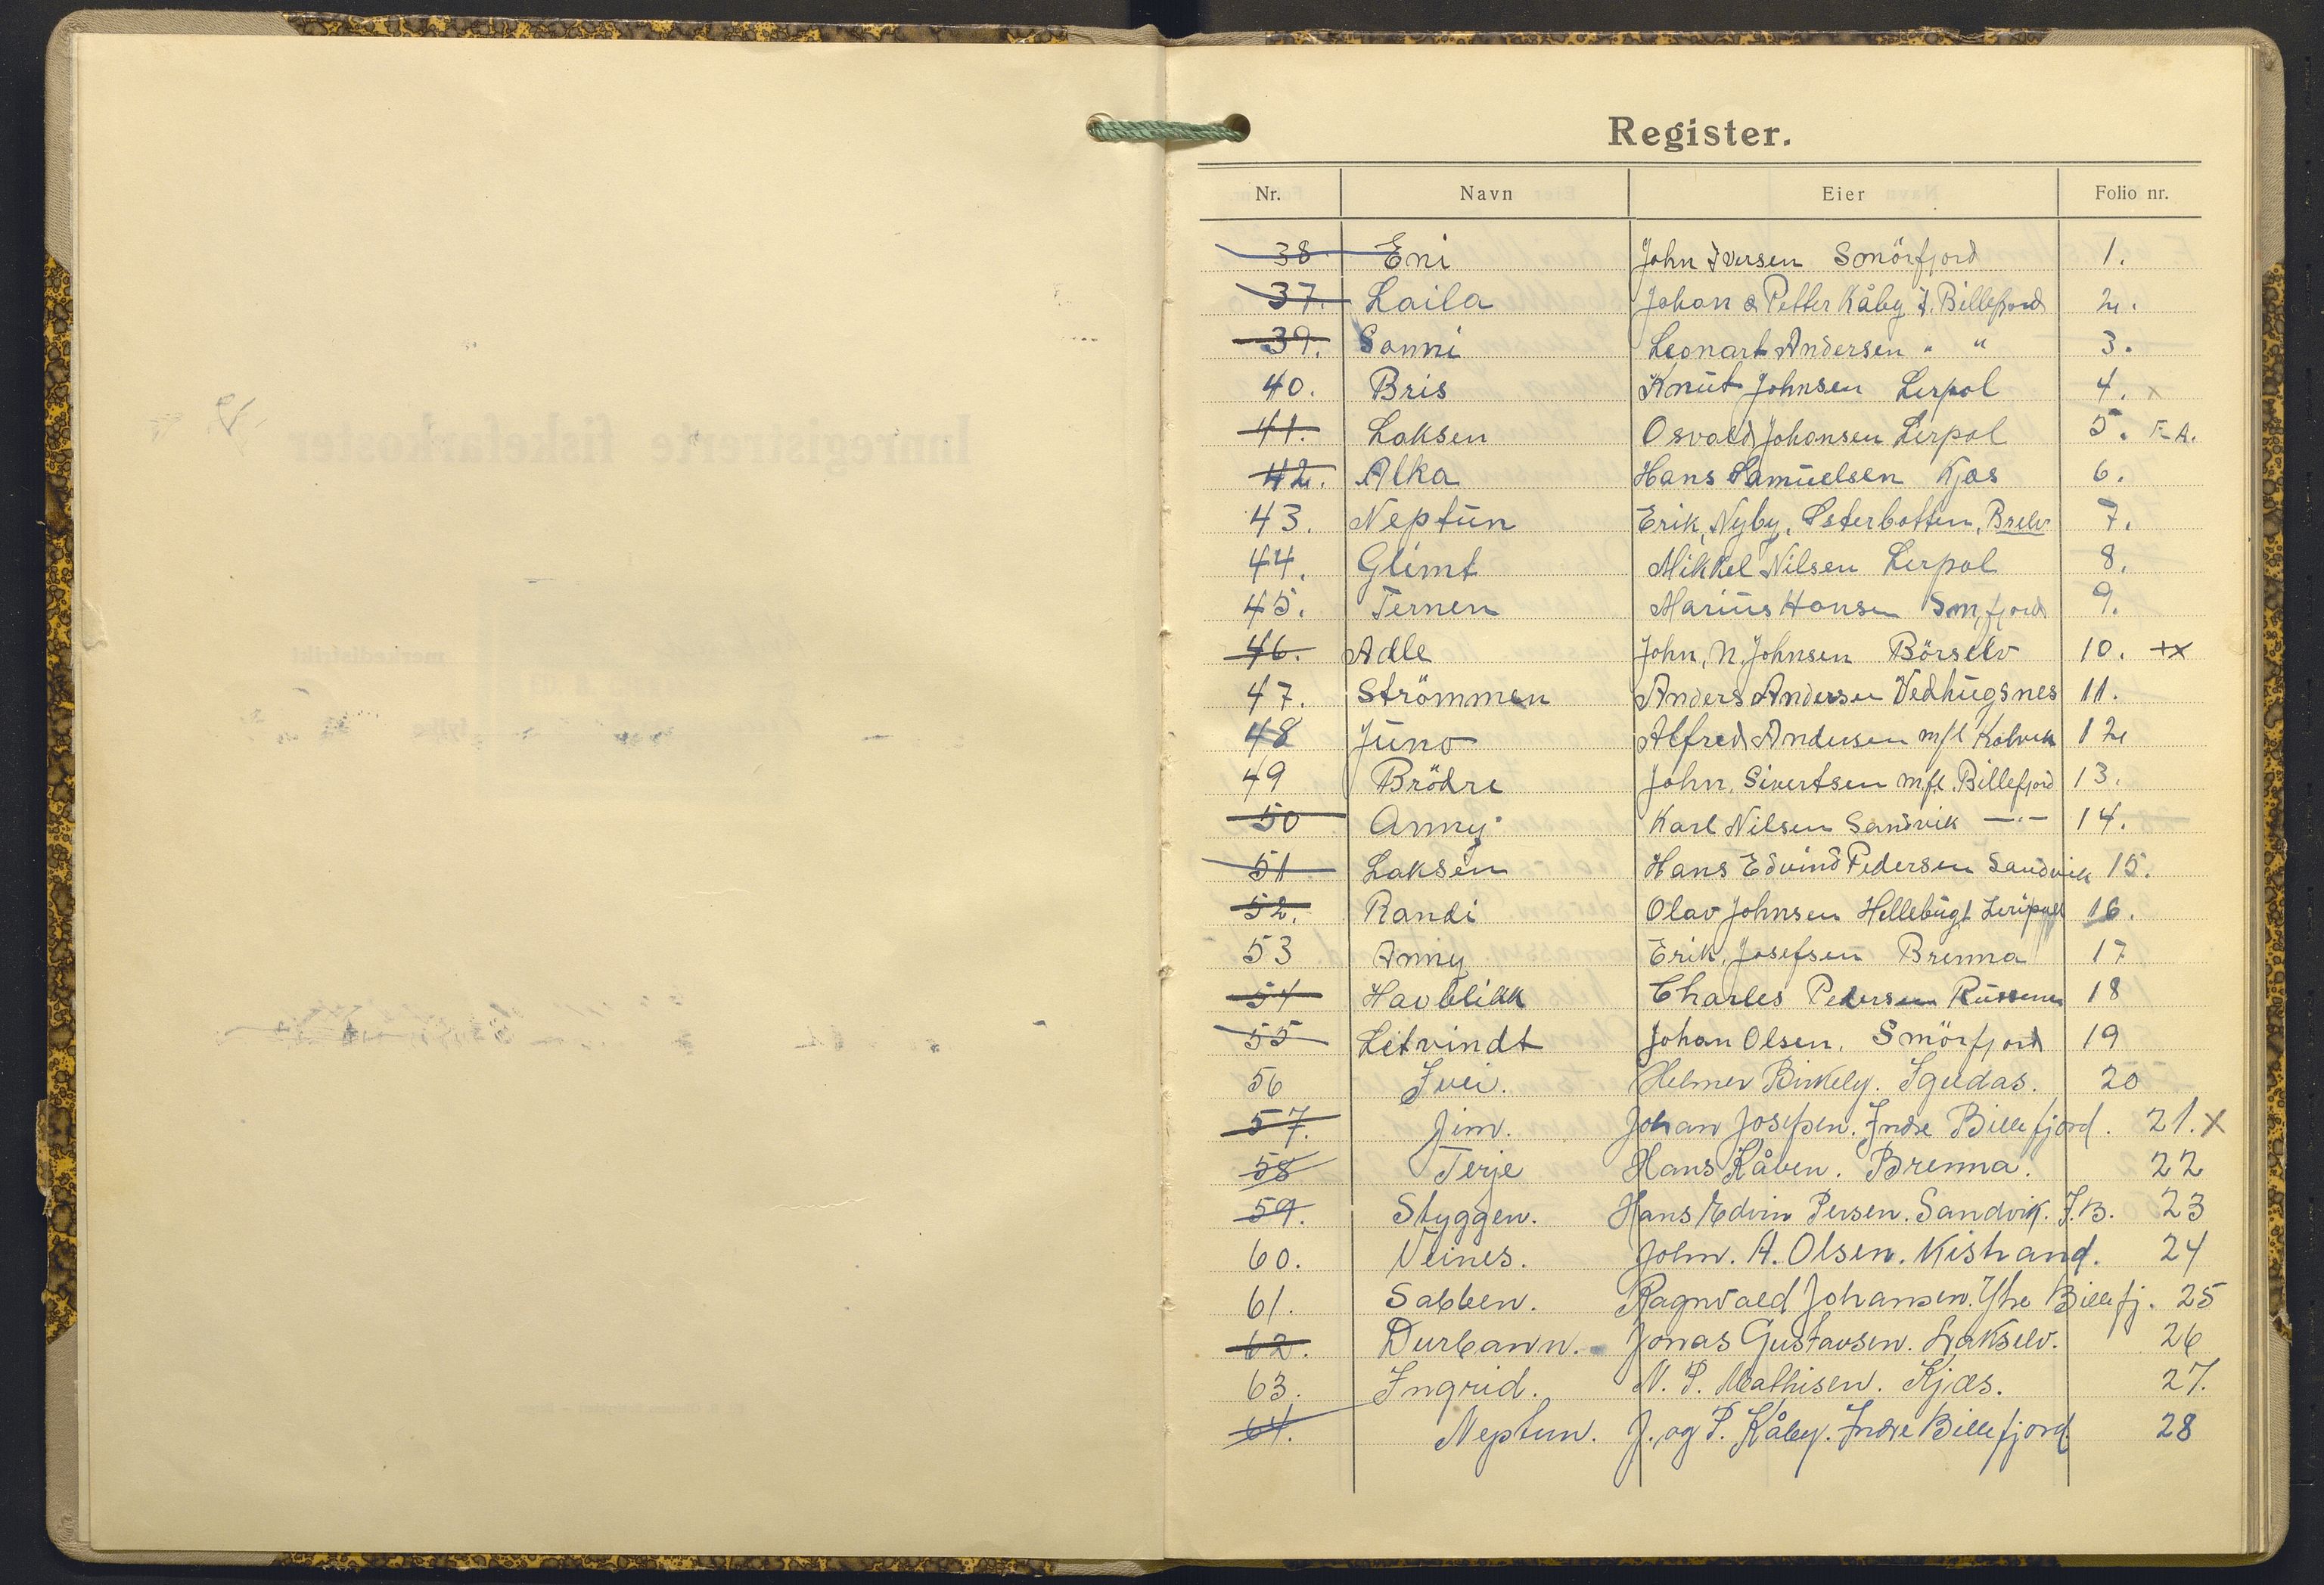 Register.
Nr. Navn Eier Folio nr.
38 Eni John Iversen Smörfjord 1.
37. Laila Johan & Petter Kåby I. Billefjord 2.
39. Sonni Leonart Andersen " " 3.
40. Bris Knut Johnsen Lerpol 4. x
41. Laksen Osvald Johansen Lerpol 5. F.A.
42. Alka Hans Samuelsen Kjæs 6.
43. Neptun Erik Nyby, Østerbotten, Brelv 7.
44. Glimt Mikkel Nilsen Lerpol 8.
45. Ternen Marius Hansen Smfjord 9.
46. Adle John. N. Johnsen Börselv 10. +x
47. Strömmen Anders Andersen Vedhugsnes 11.
48 Juno Alfred Andersen m/fl Kolvik 12
49 Brödre John. Sivertsen m.fl. Billefjord 13.
50 Anny Karl Nilsen Sandvik —"— 14.
51 Laksen Hans Edvind Pedersen Sandvik 15.
52. Randi Olav Johnsen Hellebugt Leirpoll 16.
53 Anny Erik. Josefsen Brenna 17
54 Havblikk Charles Pedersen Russenes 18
55 Letvindt Johan Olsen. Smörfjord 19
56 Ivei. Helmer Birkely. Igeldas. 20
57. Jim. Johan Josefsen. Indre Billefjord. 21. x
58 Terje Hans Kåven. Brenna. 22
59. Styggen. Hans Edvin Persen. Sandvik. I.B. 23
60. Veines. John. A. Olsen. Kistrand. 24
61. Sabben. Ragnvald Johansen. Ytre Billefj. 25
62. Durbann. Jonas Gustavsen. Lakselv. 26
63. Ingrid. N. P. Mathisen. Kjæs. 27.
64. Neptun. J. og P. Kåby. Indre Billefjord. 28
Innregistrerte fiskefarkoster
merkedistrikt
fylke